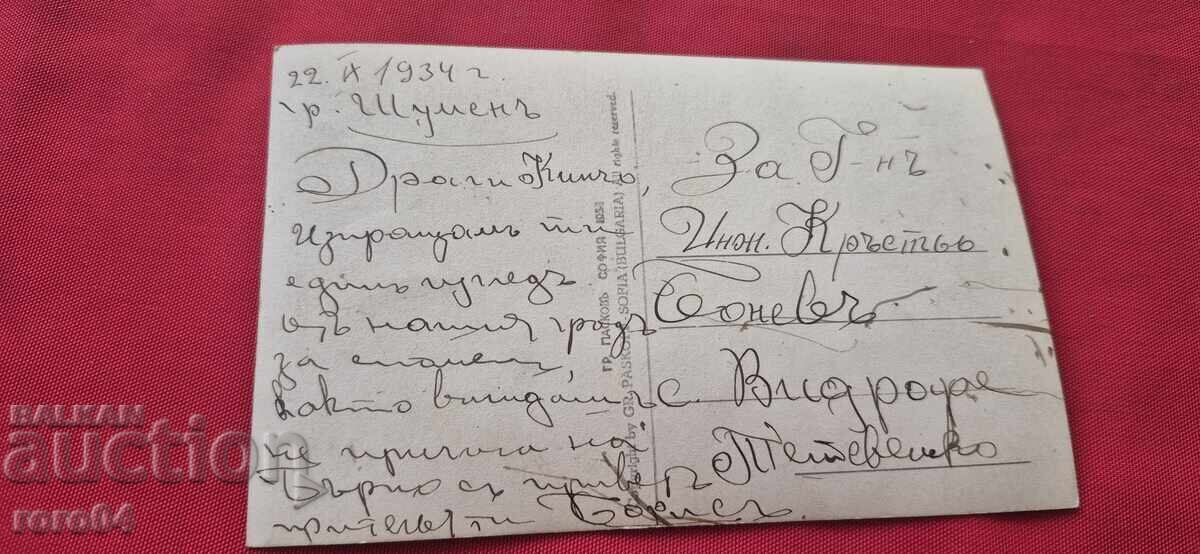 22. IX 1934 г.
гр. Шуменъ
Драги Кинчо,
изпращамъ ти
единъ изгледъ
изъ нашия градъ
за спомен,
както виждашъ
не прилича на
Търново съ привет
приятелъ ти Борисъ.
За Г-нъ
Кръстьо
Боневъ
с. Видраре
Тетевенско
ГР. ПАСКОВЪ СОФИЯ 1931
Copyright by GR. PASKOV-SOFIA (BULGARIA) All rights reserved.
BALKAN
auction
roro64